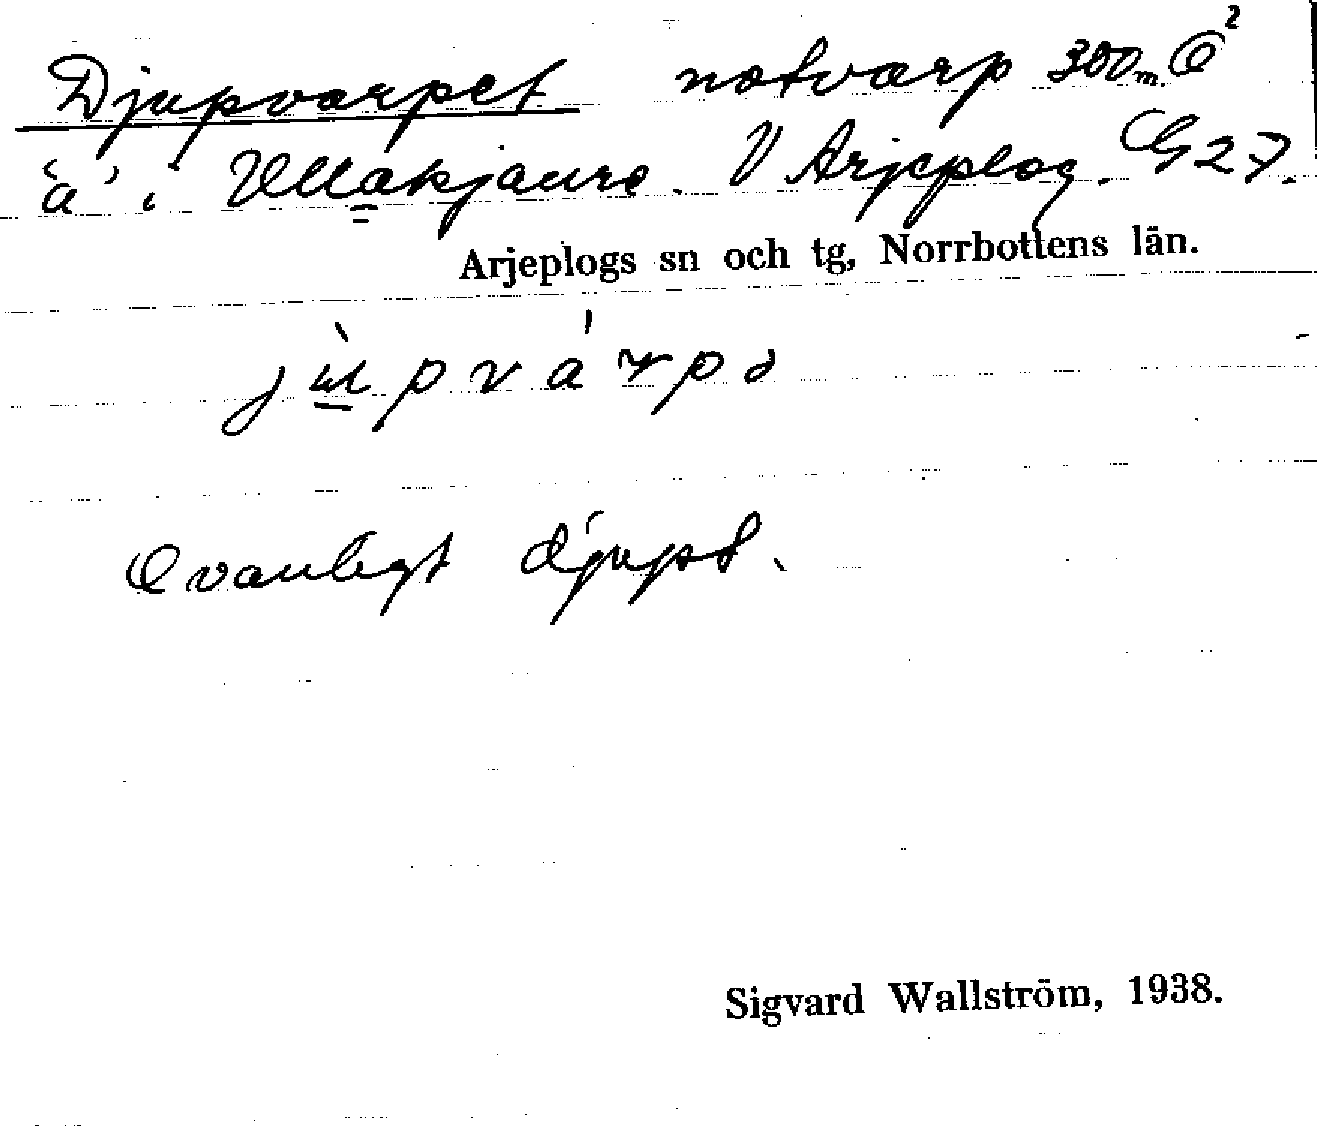 Djupvarpet notvarp 300 m O²
à' i Ullakjaure. V Arjeplog. G27.
Arjeplogs sn och tg, Norrbottens län.
Ovanligt djupt.
Sigvard Wallström, 1938.